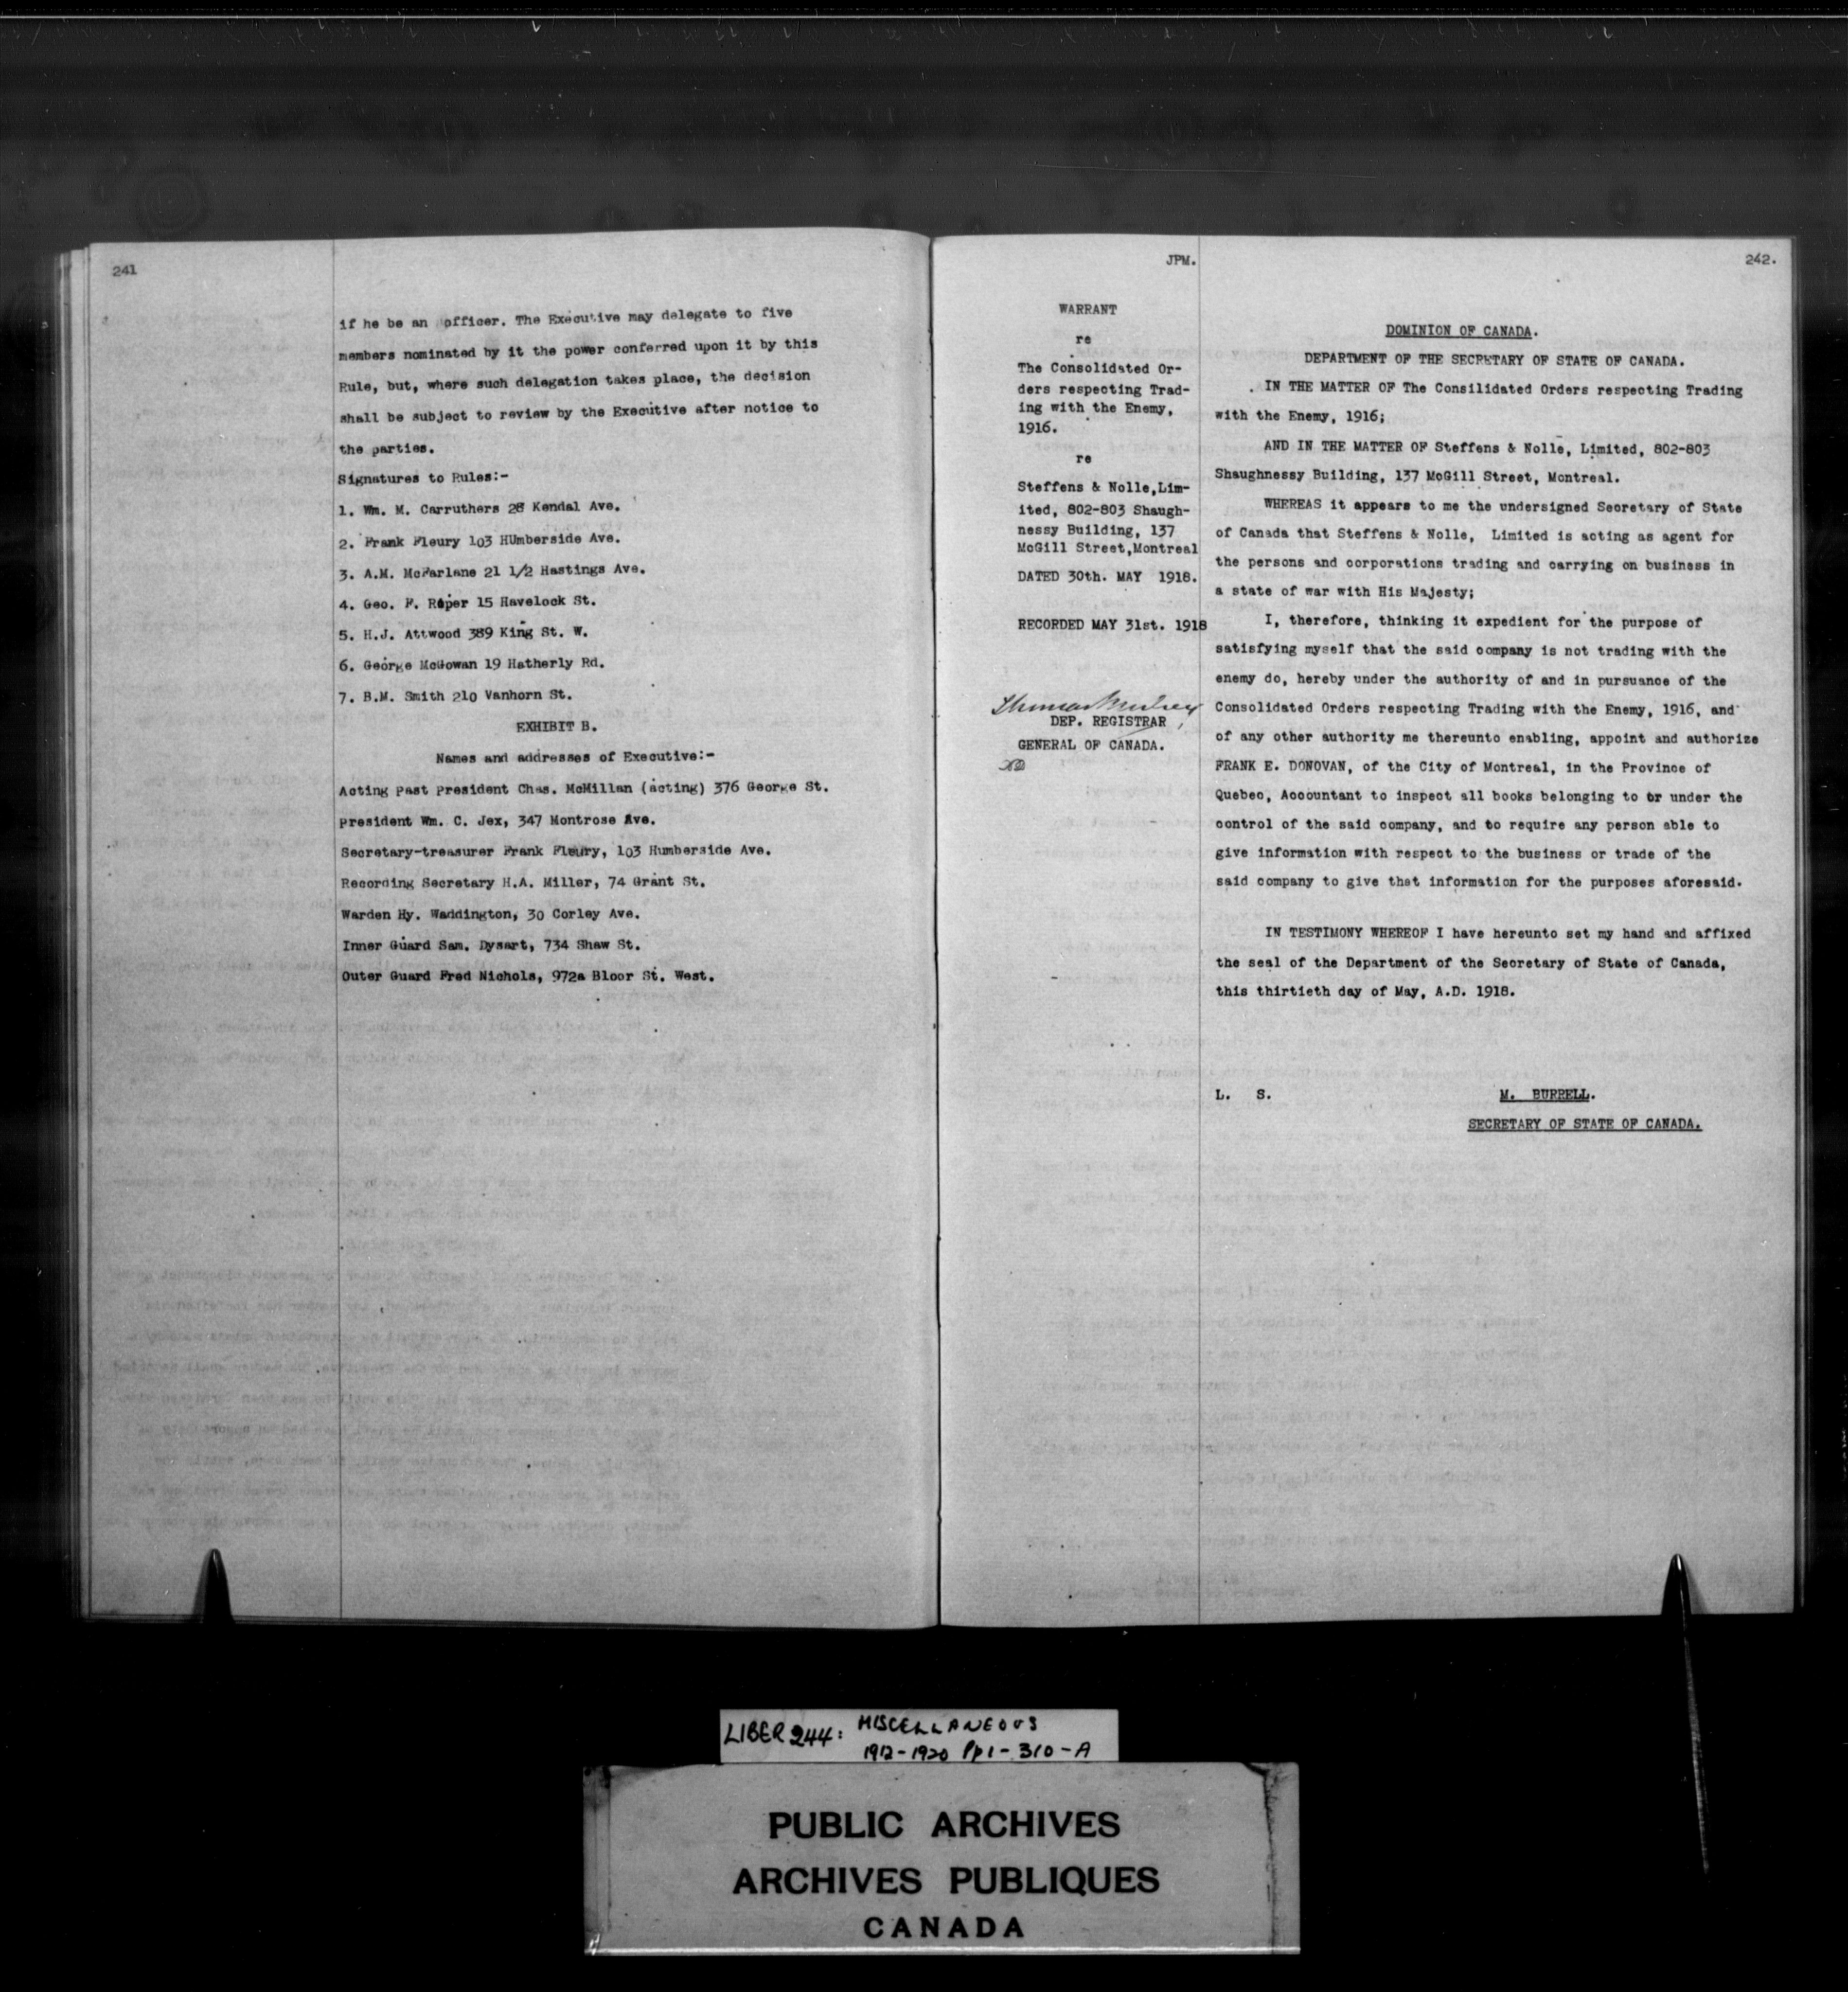 241
if he be an officer. The Executive may delegate to five
members nominated by it the power conferred upon it by this
Rule, but, where such delegation takes place, the decision
shall be subject to review by the Executive after notice to
the parties.
Signatures to Rules:-
1. Wm. M. Carruthers 28 Kendal Ave.
2. Frank Fleury 103 HUmberside Ave.
3. A.M. McFarlane 21 1/2 Hastings Ave.
4. Geo. F. Roper 15 Havelock St.
5. H.J. Attwood 389 King St. W.
6. George McGowan 19 Hatherly Rd.
7. B.M. Smith 210 Vanhorn St.
EXHIBIT B.
Names and addresses of Executive:-
Acting Past President Chas. McMillan (acting) 376 George St.
President Wm. C. Jex, 347 Montrose Ave.
Secretary-treasurer Frank Fleury, 103 Humberside Ave.
Recording Secretary H.A. Miller, 74 Grant St.
Warden Hy. Waddington, 30 Corley Ave.
Inner Guard Sam. Dysart, 734 Shaw St.
Outer Guard Fred Nichols, 972a Bloor St. West.
JPM.
242.
WARRANT
re
The Consolidated Or-
ders respecting Trad-
ing with the Enemy,
1916.
re
Steffens & Nolle,Lim-
ited, 802-803 Shaugh-
nessy Building, 137
McGill Street,Montreal
DATED 30th. MAY 1918.
RECORDED MAY 31st. 1918
DEP. REGISTRAR
GENERAL OF CANADA.
DOMINION OF CANADA.
DEPARTMENT OF THE SECRETARY OF STATE OF CANADA.
IN THE MATTER OF The Consilidated Orders respecting Trading
with the Enemy, 1916;
AND IN THE MATTER OF Steffens & Nolle, Limited, 802-803
Shaughnessy Building, 137 McGill Street, Montreal.
WHEREAS it appears to me the undersigned Secretary of State
of Canada that Steffens & Nolle, Limited is acting as agent for
the persons and corporations trading and carrying on business in
a state of war with His Majesty;
I, therefore, thinking it expedient for the purpose of
satisfying myself that the said company is not trading with the
enemy do, hereby under the authority of and in pursuance of the
Consolidated Orders respecting Trading with the Enemy, 1916, and
of any other authority me thereunto enabling, appoint and authorize
FRANK E. DONOVAN, of the City of Montreal, in the Province of
Quebec, Accountant to inspect all books belonging to or under the
control of the said company, and to require any person able to
give information with respect to the business or trade of the
said company to give that information for the purposes aforesaid.
IN TESTIMONY WHEREOF I have hereunto set my hand and affixed
the seal of the Department of the Secretary of State of Canada,
this thirtieth day of May, A.D. 1918.
L. S. M. BURRELL.
SECRETARY OF STATE OF CANADA.
LIBER 244: MISCELLANEOUS
1912-1920 Pp 1-310-A
PUBLIC ARCHIVES
ARCHIVES PUBLIQUES
CANADA